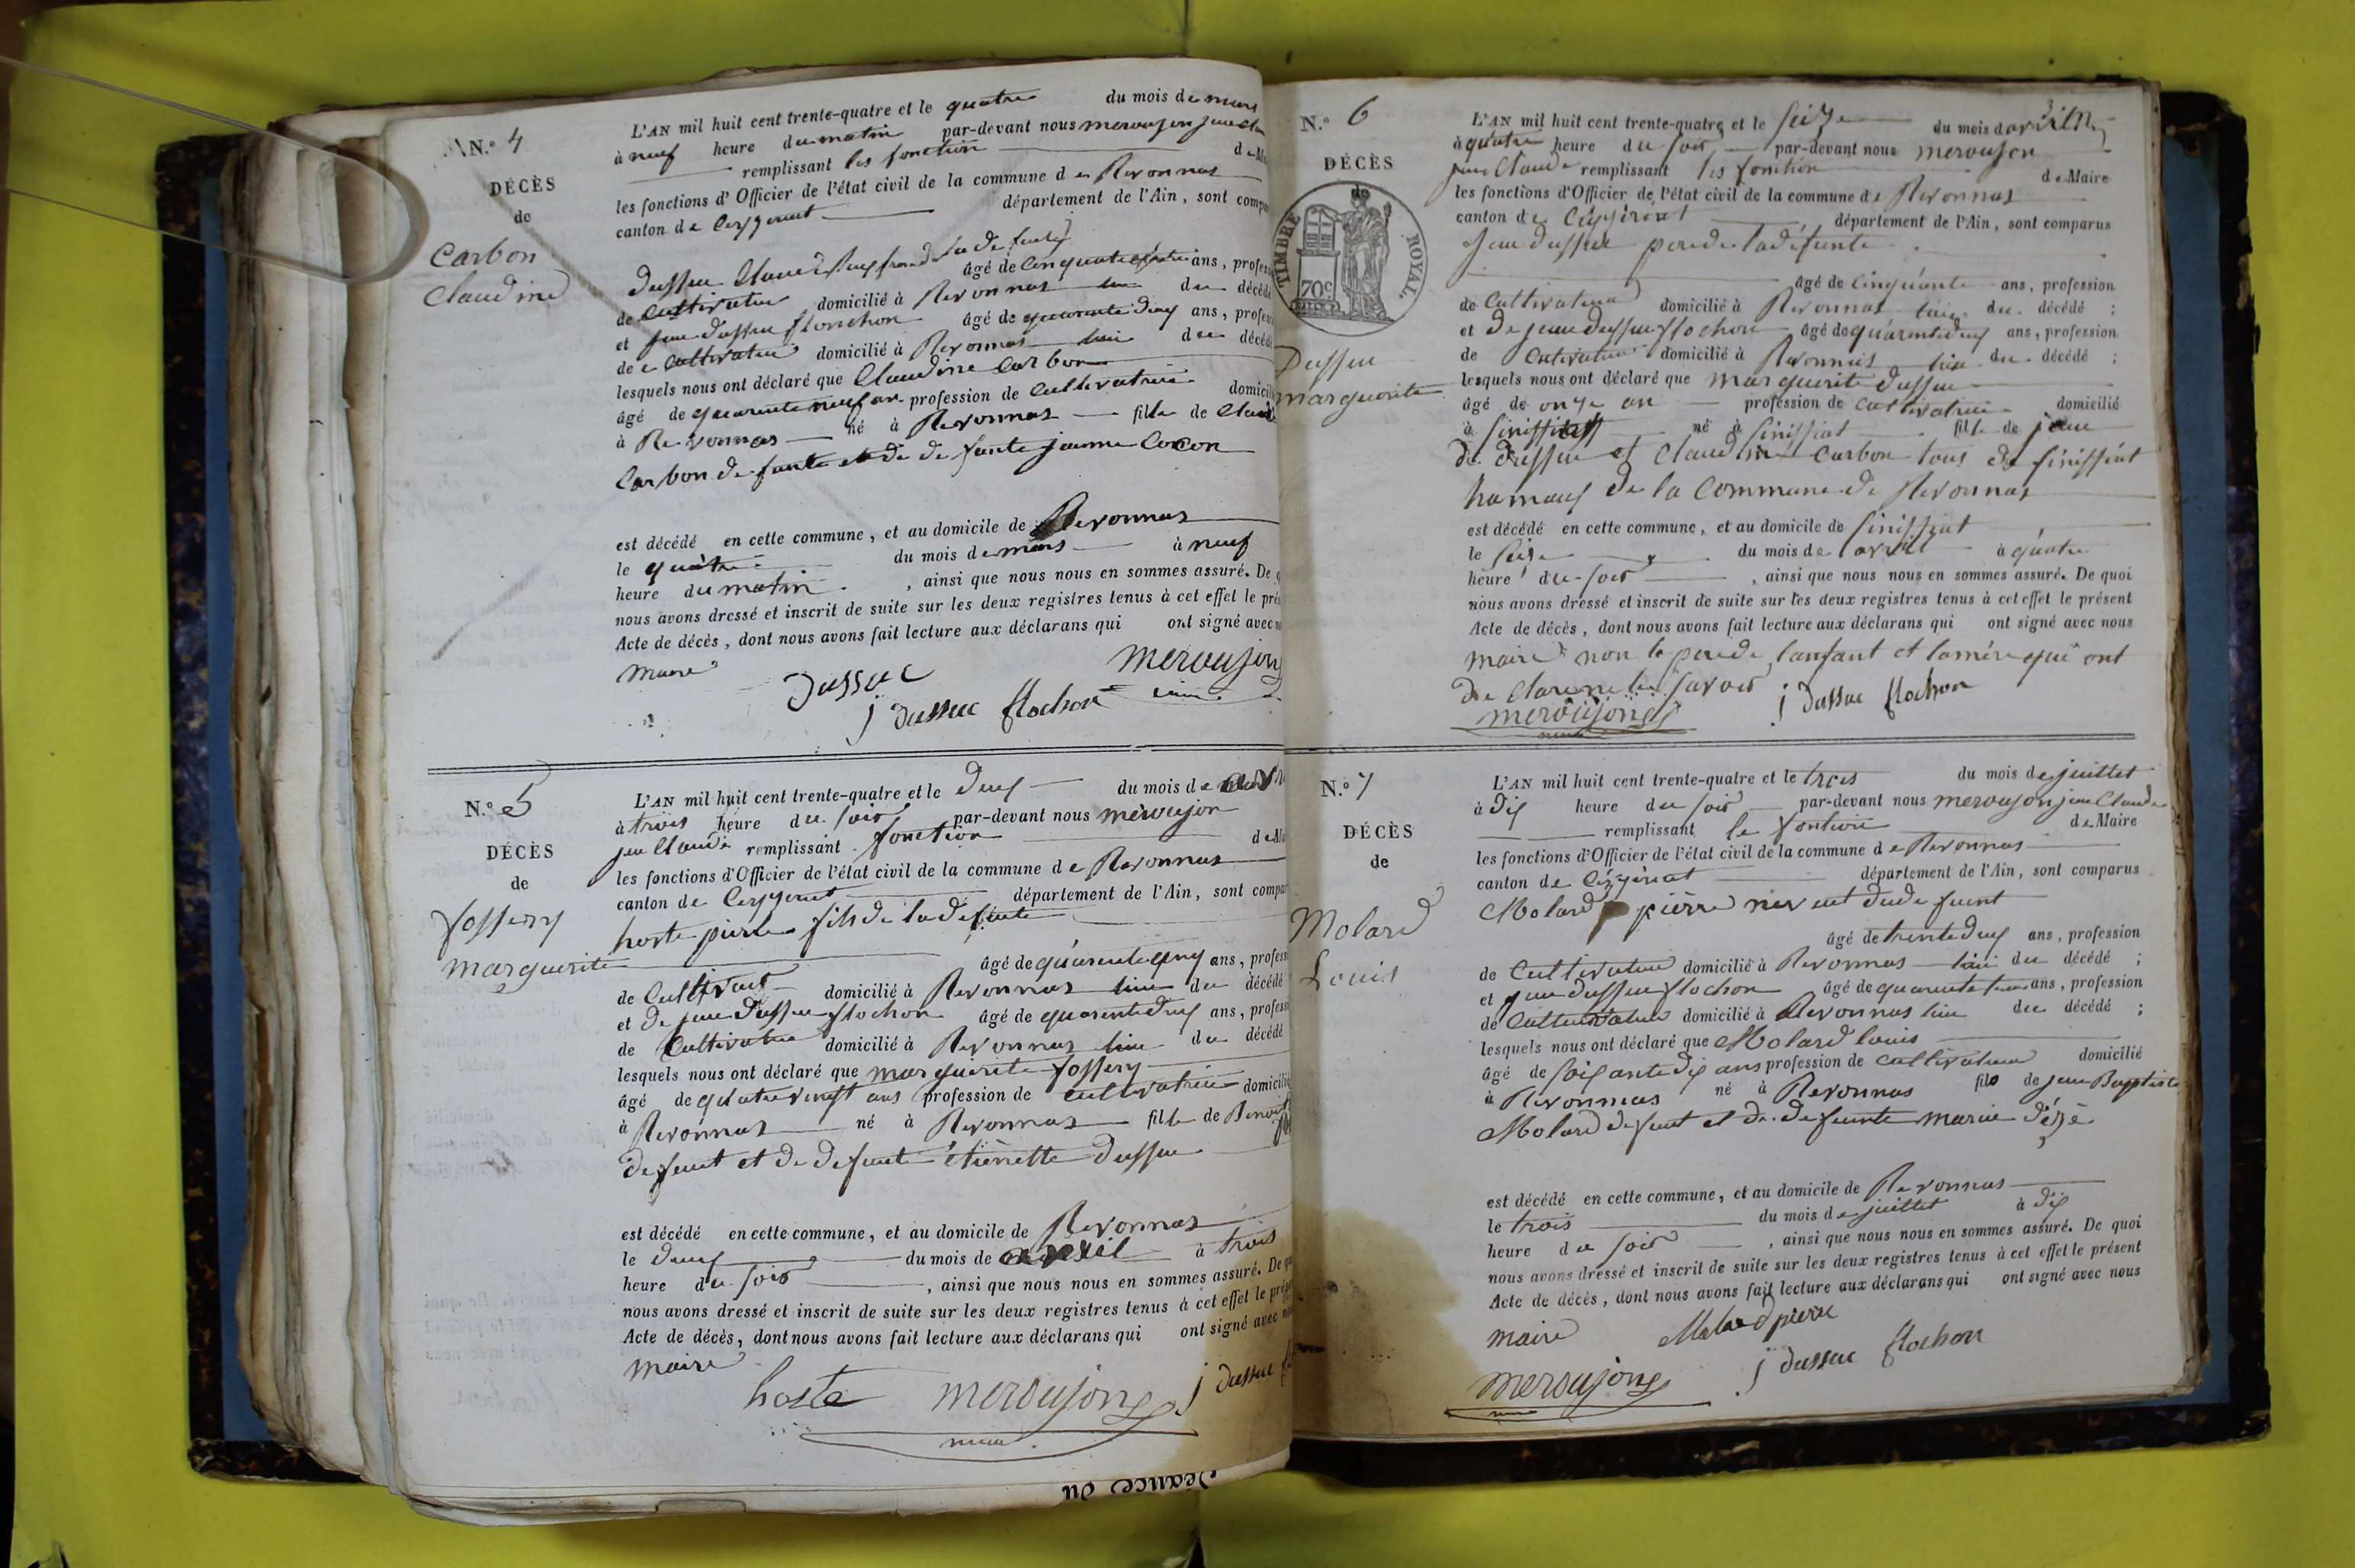 N.° 4
DÉCÈS
de
Carbon
Claudine
L'AN mil huit cent trente-quatre et le quatre du mois de mars
à neuf heure du matin par-devant nous meroujon jean
remplissant les fonction
les fonctions d'Officier de l'état civil de la commune de Revonnas
canton de Ceyzeriat département de l'Ain, sont
Dussuc Claude de la défunte
âgé de cinquante ans,
de Cultivateur domicilié à Revonnas du
et jean dussuc flonchon âgé de quarante deux ans,
de Cultivateur domicilié à Revonnas du
lesquels nous ont déclaré que Claudine Carbon
âgé de quarante neuf an profession de Cultivatrice
à Revonnas né à Revonnas fille de
Carbon de funte et de de funte jeanne Cocon
est décédé en cette commune, et au domicile de Revonnas
le quatre du mois de mars à neuf
heure du matin, ainsi que nous nous en sommes assuré. De
nous avons dressé et inscrit de suite sur les deux registres tenus à cet effet le
Acte de décès, dont nous avons fait lecture aux déclarans qui ont signé avec
maire
Dussuc meroujon
j dussuc flochon
N.° 5
DÉCÈS
de
fossery
marguerite
L'AN mil huit cent trente-quatre et le deux du mois de
à trois heure du soir par-devant nous meroujon
jean Claude remplissant fonction
les fonctions d'Officier de l'état civil de la commune de Revonnas
canton de Ceyzeriat département de l'Ain, sont
hoste pierre fils de la defunte
âgé de ans,
de domicilié à Revonnas du décédé
et de jean Dussuc flochon âgé de quarante deux ans,
de Cultivateur domicilié à Revonnas du décédé
lesquels nous ont déclaré que marguerite fossery
âgé de quatre vingt ans profession de cultivatrice
à Revonnas né à Revonnas fille de Benoit
defunt et de defunte étiennette Dussuc
est décédé en cette commune, et au domicile de Revonnas
le deux du mois de avril à trois
heure du soir, ainsi que nous nous en sommes assuré. De
nous avons dressé et inscrit de suite sur les deux registres tenus à cet effet le
Acte de décès, dont nous avons fait lecture aux déclarans qui ont signé avec
maire
hoste meroujon j dussuc
maire
Séance du
N.° 6
DÉCÈS
de
TIMBRE ROYAL.
70c
Dussuc
marguerite
L'AN mil huit cent trente-quatre et le seize du mois d avril
à quatre heure du soir par-devant nous meroujon
jean Claude remplissant les fonction de Maire
les fonctions d'Officier de l'état civil de la commune de Revonnas
canton de Ceyzériat département de l'Ain, sont comparus
Jean dussuc pere de la défunte
âgé de cinquante ans, profession
de Cultivateur domicilié à Revonnas du décédé ;
et de jean dussuc flochon âgé de quarante deux ans, profession
de Cultivateur domicilié à Revonnas du décédé ;
lesquels nous ont déclaré que marguerite dussuc
âgé de onze an profession de cultivatrice domicilié
à né à sinissiat fille de jean
de dussuc et Claudine Carbon tous de sinissiat
hamaux de la Commune de Revonnas
est décédé en cette commune, et au domicile de sinissiat
le seize du mois de avril à quatre
heure du soir, ainsi que nous nous en sommes assuré. De quoi
nous avons dressé et inscrit de suite sur les deux registres tenus à cet effet le présent
Acte de décès, dont nous avons fait lecture aux déclarans qui ont signé avec nous
maire non le pere de lanfant et lamére qui ont
de Clare ne les savoir j dussuc flochon
meroujon
maire
N.° 7
DÉCÈS
de
Molard
Louis
L'AN mil huit cent trente-quatre et le trois du mois de juillet
à dix heure du soir par-devant nous meroujon jean Claude
remplissant le fontion de Maire
les fonctions d'Officier de l'état civil de la commune de Revonnas
canton de Céyzériat département de l'Ain, sont comparus
Molard pièrre nev eut du de funt
âgé de trente deux ans, profession
de Cultivateur domicilié à Revonnas du décédé ;
et jean dussuc flochon âgé de quarante ans, profession
de Cultivateur domicilié à Revonnas du décédé ;
lesquels nous ont déclaré que Molard louis
âgé de soixante dix ans profession de cultivateur domicilié
à Revonnas né à Revonnas fils de jean Baptiste
Molard defunt et de de funte marie
est décédé en cette commune, et au domicile de Revonnas
le trois du mois de juillet à dix
heure du soir, ainsi que nous nous en sommes assuré. De quoi
nous avons dressé et inscrit de suite sur les deux registres tenus à cet effet le présent
Acte de décès, dont nous avons fait lecture aux déclarans qui ont signé avec nous
maire Molard pierre
meroujon j dussuc flochon